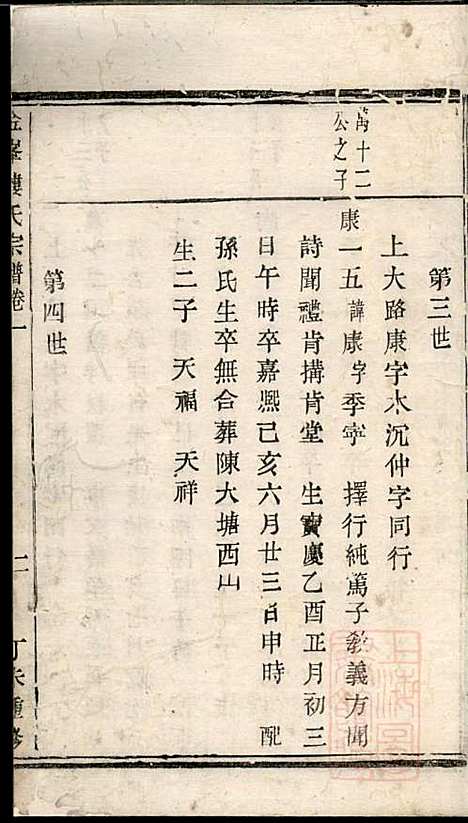 第三世
上大路康字木沉仲字同行
萬十二
公之子
康一五諱康字季寧 擇行純篤子教義方聞
詩聞禮肯搆肯堂 生寶慶乙酉正月初三
日午時卒嘉熙己亥六月廿三日申時 配
孫氏生卒無合葬陳大塘西山
生二子 天福 天祥
第四世
婁氏宗譜卷一 二 丁未重修